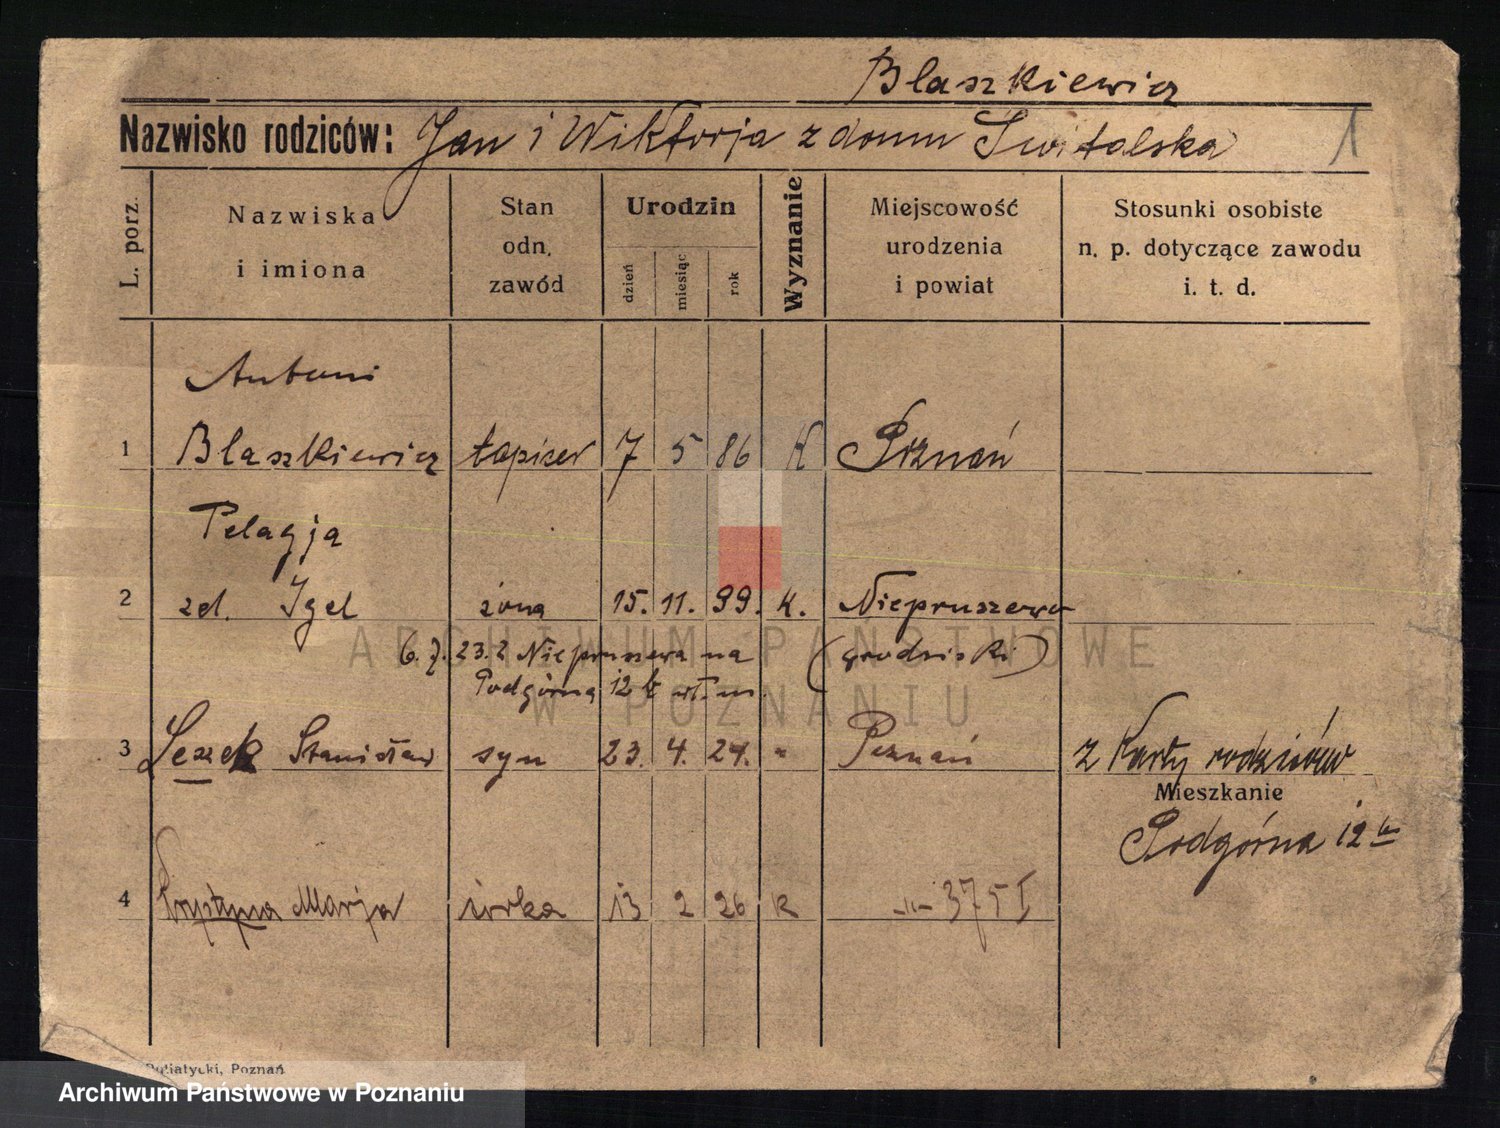 Blaszkiewicz
Nazwisko rodziców: Jan i Wiktorja z domu Switalska 1
L. porz.
Nazwiska
i imiona
Stan
odn.
zawód
Urodzin
dzień
miesiąc
rok
Wyznanie
Miejscowość
urodzenia
i powiat
Stosunki osobiste
n. p. dotyczące zawodu
i. t. d.
Antoni
1 Blaszkiewicz tapicer 7 5 86 K Poznań
Pelagja
2 zd. Igel żona 15. 11. 99. K. Niepruszewo
(grodziski)
6. 7. 23. z Niepruszewa na
Podgórną 12b
3 Leszek Stanisław syn 23. 4. 24. " Poznań z Karty rodziców
Mieszkanie
Podgórna 12b
4 Krystyna Marja córka 13 2 26 k -"- 375 I
Putiatycki, Poznań
ARCHIWUM PAŃSTWOWE
W POZNANIU
Archiwum Państwowe w Poznaniu